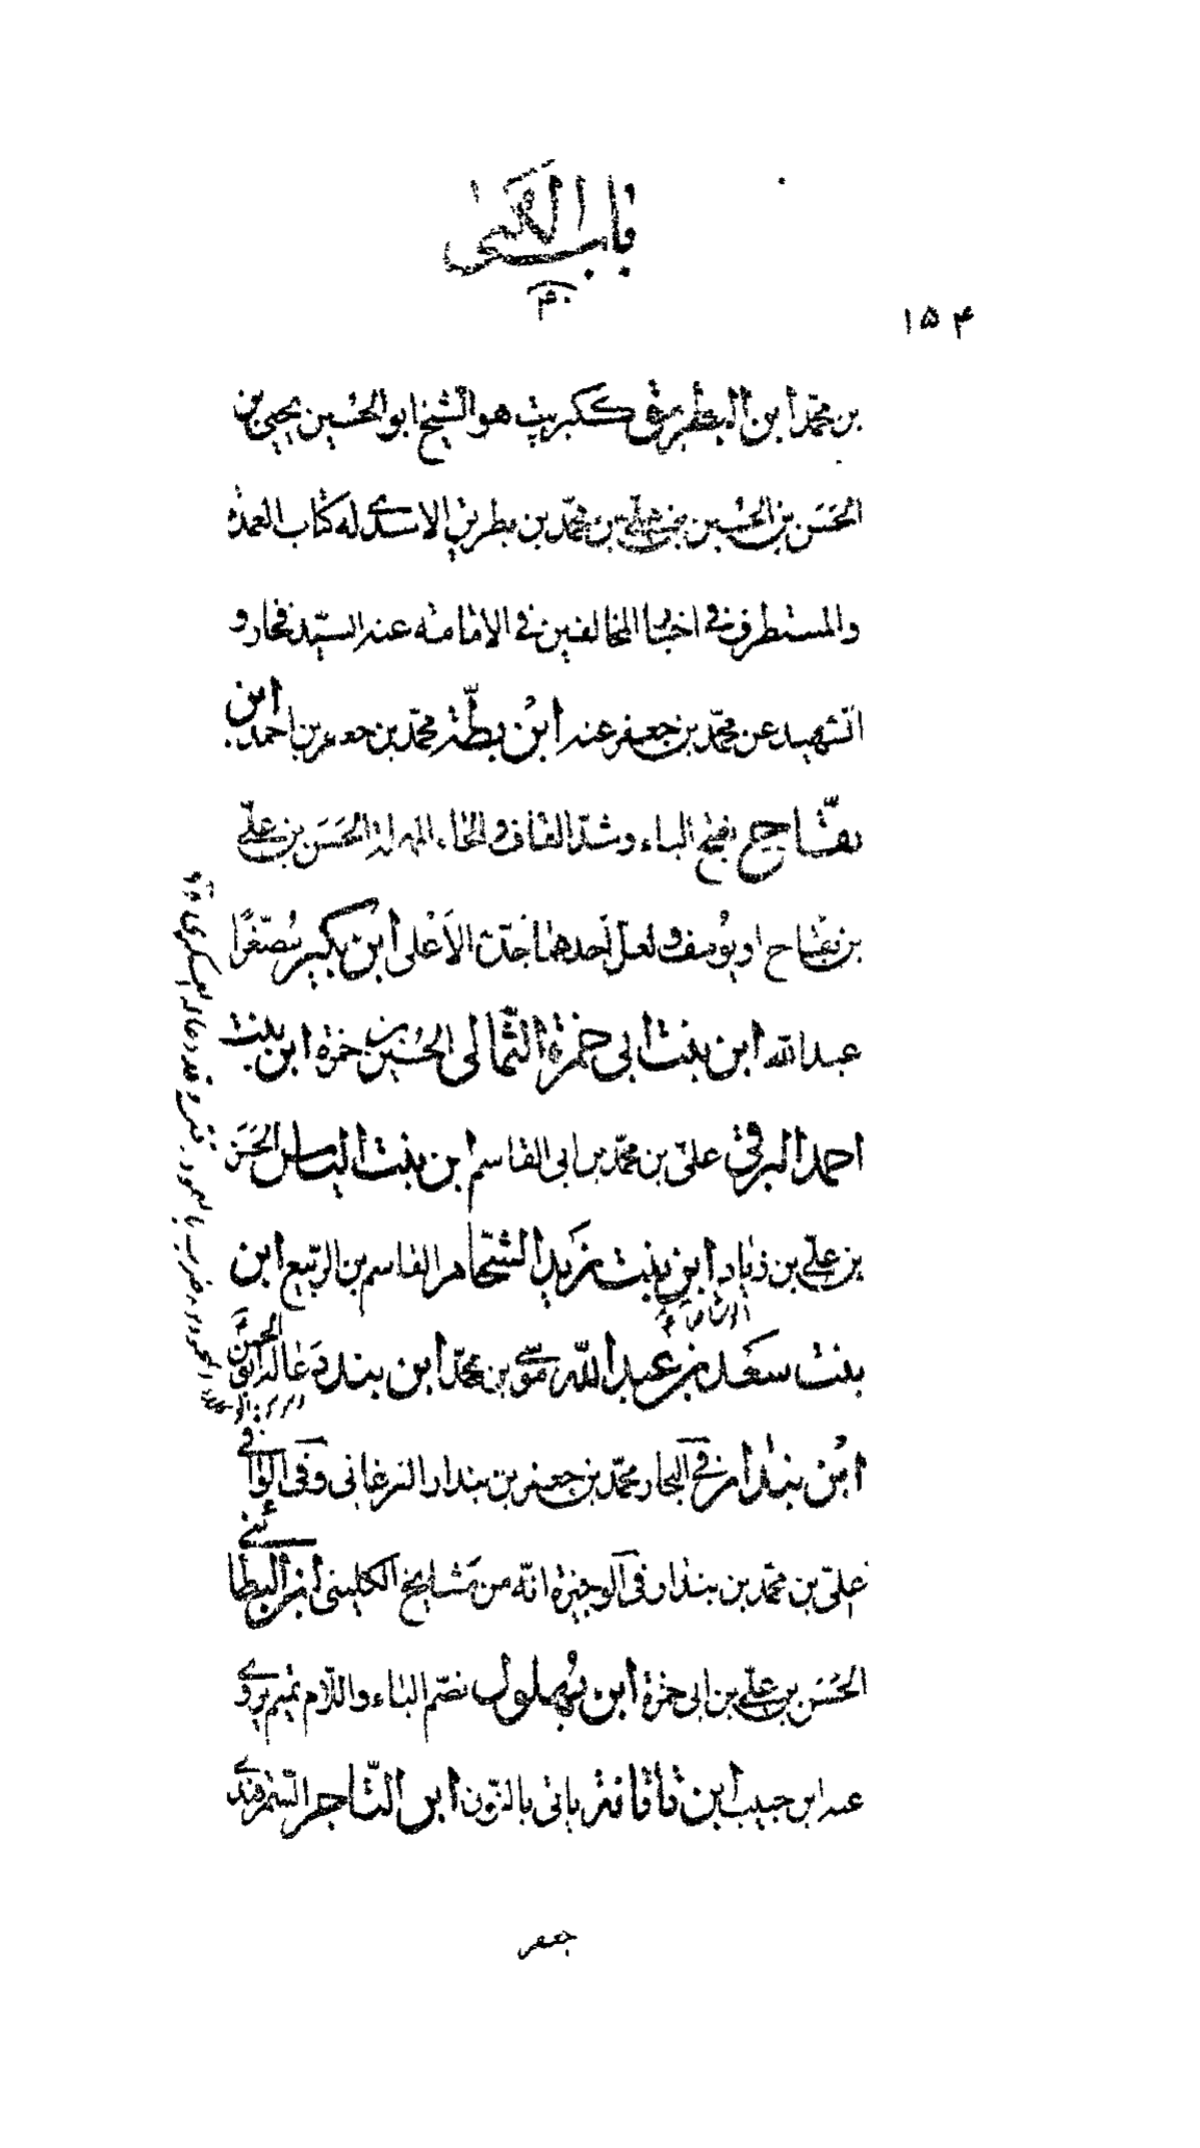 باب الكنى
۱۵۴
بن محمّد ابن البطريق ككبريت هو الشيخ ابو الحسين يحيى بن
الحسن بن الحسين بن علىّ بن محمّد بن بطريق الاسدى له كتاب العمدة
والمستطرف فى اخبار المخالفين فى الامامة عنه السيّد فخار و
الشهيد عن محمّد بن جعفر عنه ابن بطّة محمّد بن جعفر بن احمد ابن
بقّاح بفتح الباء وشدّ القاف والحاء المهملة الحَسَن بن علىّ
بن بقاح او يوسف ولعلّ احدهما جدّه الاَعْلى ابن بكير مُصَغّرًا
عبد الله ابن بنت ابى حمزة الثّمالى الحسين بن حمزة ابن بنت
احمد البرقى علىّ بن محمّد بن ابى القاسم ابن بنت الياس الحَسَن
بن علىّ بن زياد ابن بنت زيد الشحّام القاسم بن الرّبيع ابن
بنت سعد بن عبد الله موسى بن محمّد ابن بند خاله ابو الحسن
ابن بندار فى البحار محمّد بن جعفر بن بندار الفرغانى وفى الوافى
علىّ بن محمّد بن بندار فى الوجيزة انّه من مَشايخ الكلينى ابن البطائنى
الحَسَن بن علىّ بن ابى حمزة ابن بُهلول بضمّ الباء واللّام تميم يروى
عنه ابن حبيب ابن تاتانة ياتى بالنّون ابن التّاجر السّمرقندى
جعفر